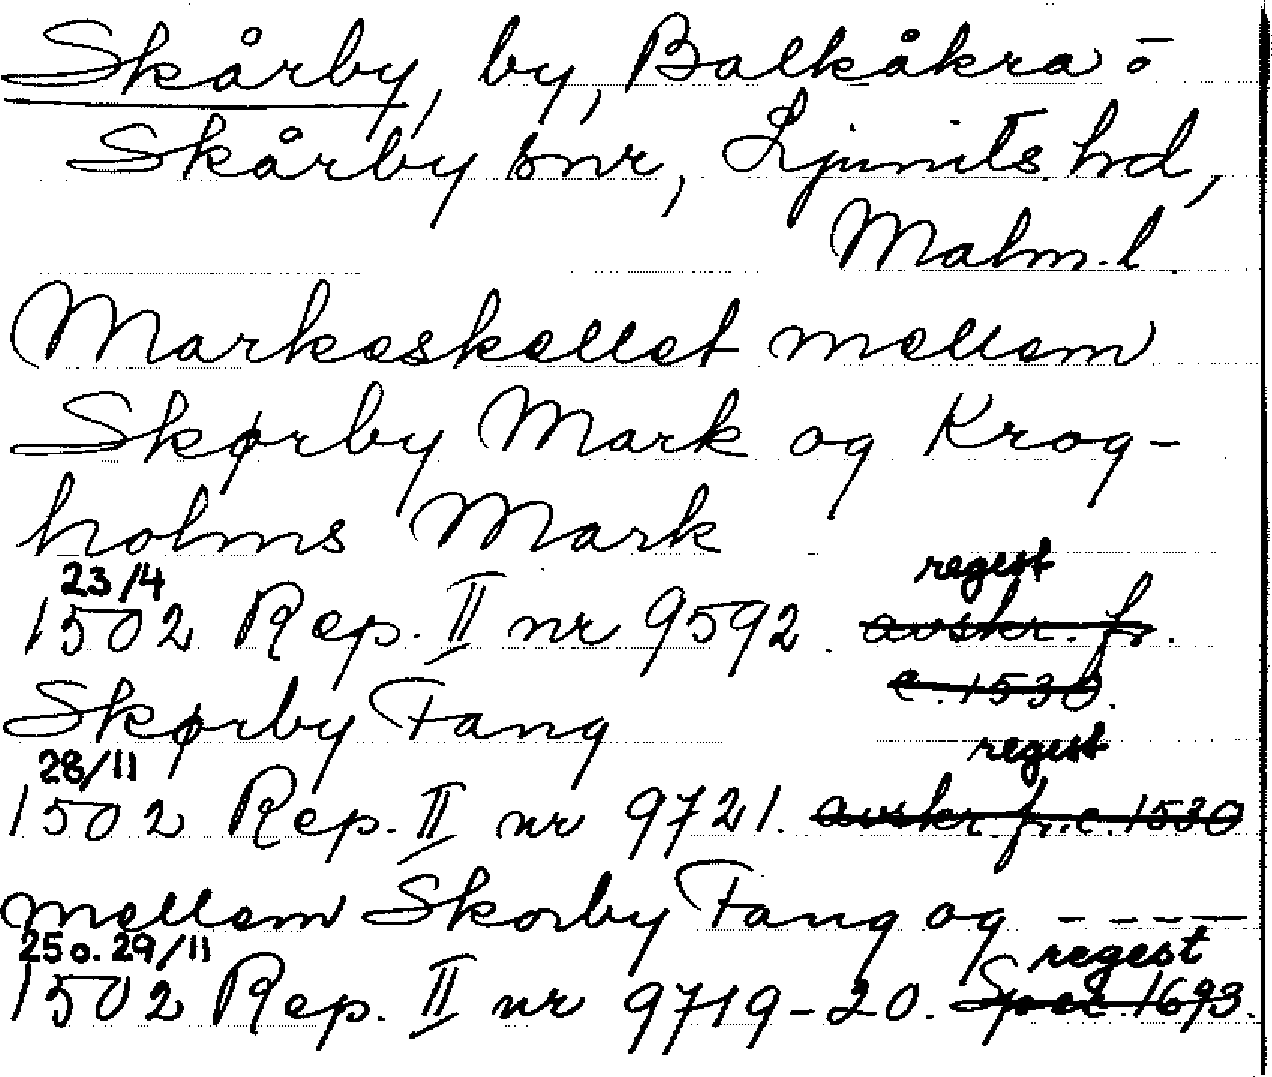 Skårby, by, Balkåkra o
Skårby snr, Ljunits hd,
Malm. l.
Markeskellet mellem
Skørby Mark og Krog-
holms Mark
23/4 regest
1502 Rep. II nr 9592. avskr. fr.
c. 1530.
Skørby Fang
28/11 regest
1502 Rep. II nr 9721. avskr. fr. c. 1530
mellem Skorby Fang og - - - - -
25 o. 29/11 regest
1502 Rep. II nr 9719-20. Sper 1693.